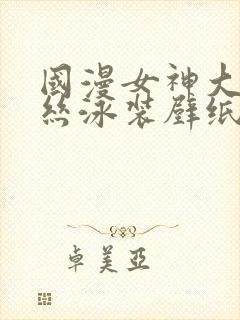 國漫女神大
絲泳装壁纸
卓美亞